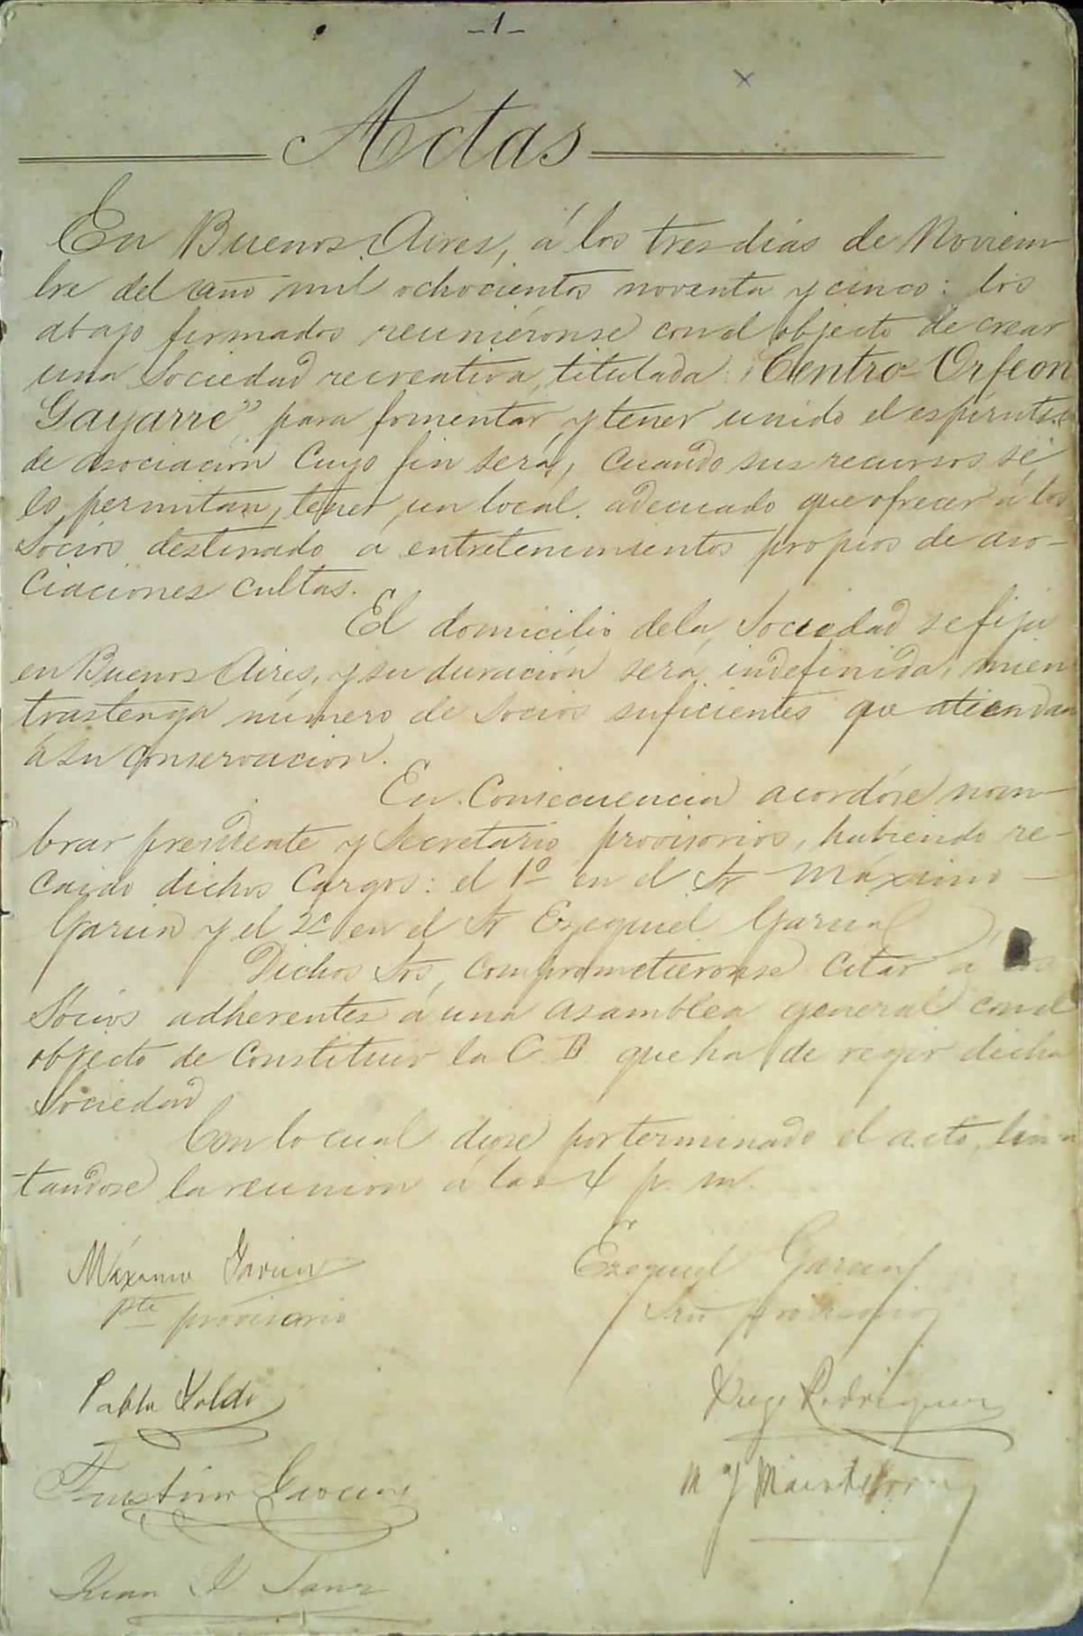 -1-
Actas
En Buenos Aires, á los tres dias de Noviem
bre del año mil ochocientos noventa y cinco: los
abajo firmados reuniéronse con el objecto de crear
una Sociedad recreativa, titulada "Centro Orfeon
Gayarre" para fomentar y tener unido el espíritu
de asociacion cuyo fin será, cuando sus recursos se
lo permitan, tener un local adecuado que ofrecer á los
Socios destinado a entretenimientos propios de aso-
ciaciones cultas.
El domicilio de la Sociedad se fija
en Buenos Aires, y su duración será indefinida, mien
tras tenga número de Socios suficientes que atiendan
á su conservacion.
En Consecuencia acordóse nom-
brar presidente y Secretario provisorios, habiendo re-
caido dichos Cargos: el 1º en el Sr Máximo -
Garcia y el 2º en el Sr Ezequiel Garcia
Dichos Srs, comprometieronse citar á los
Socios adherentes á una asamblea general con el
objecto de Constituir la C. D. que ha de regir dicha
Sociedad
Con lo cual dióse por terminado el acto, levan
tandose la reunion á las 4 p. m.
Máximo Garcia Ezequiel Garcia
pte provisorio Srio provisorio
Pablo Diego Rodriguez
Faustino Garcia M J
Juan Sanz